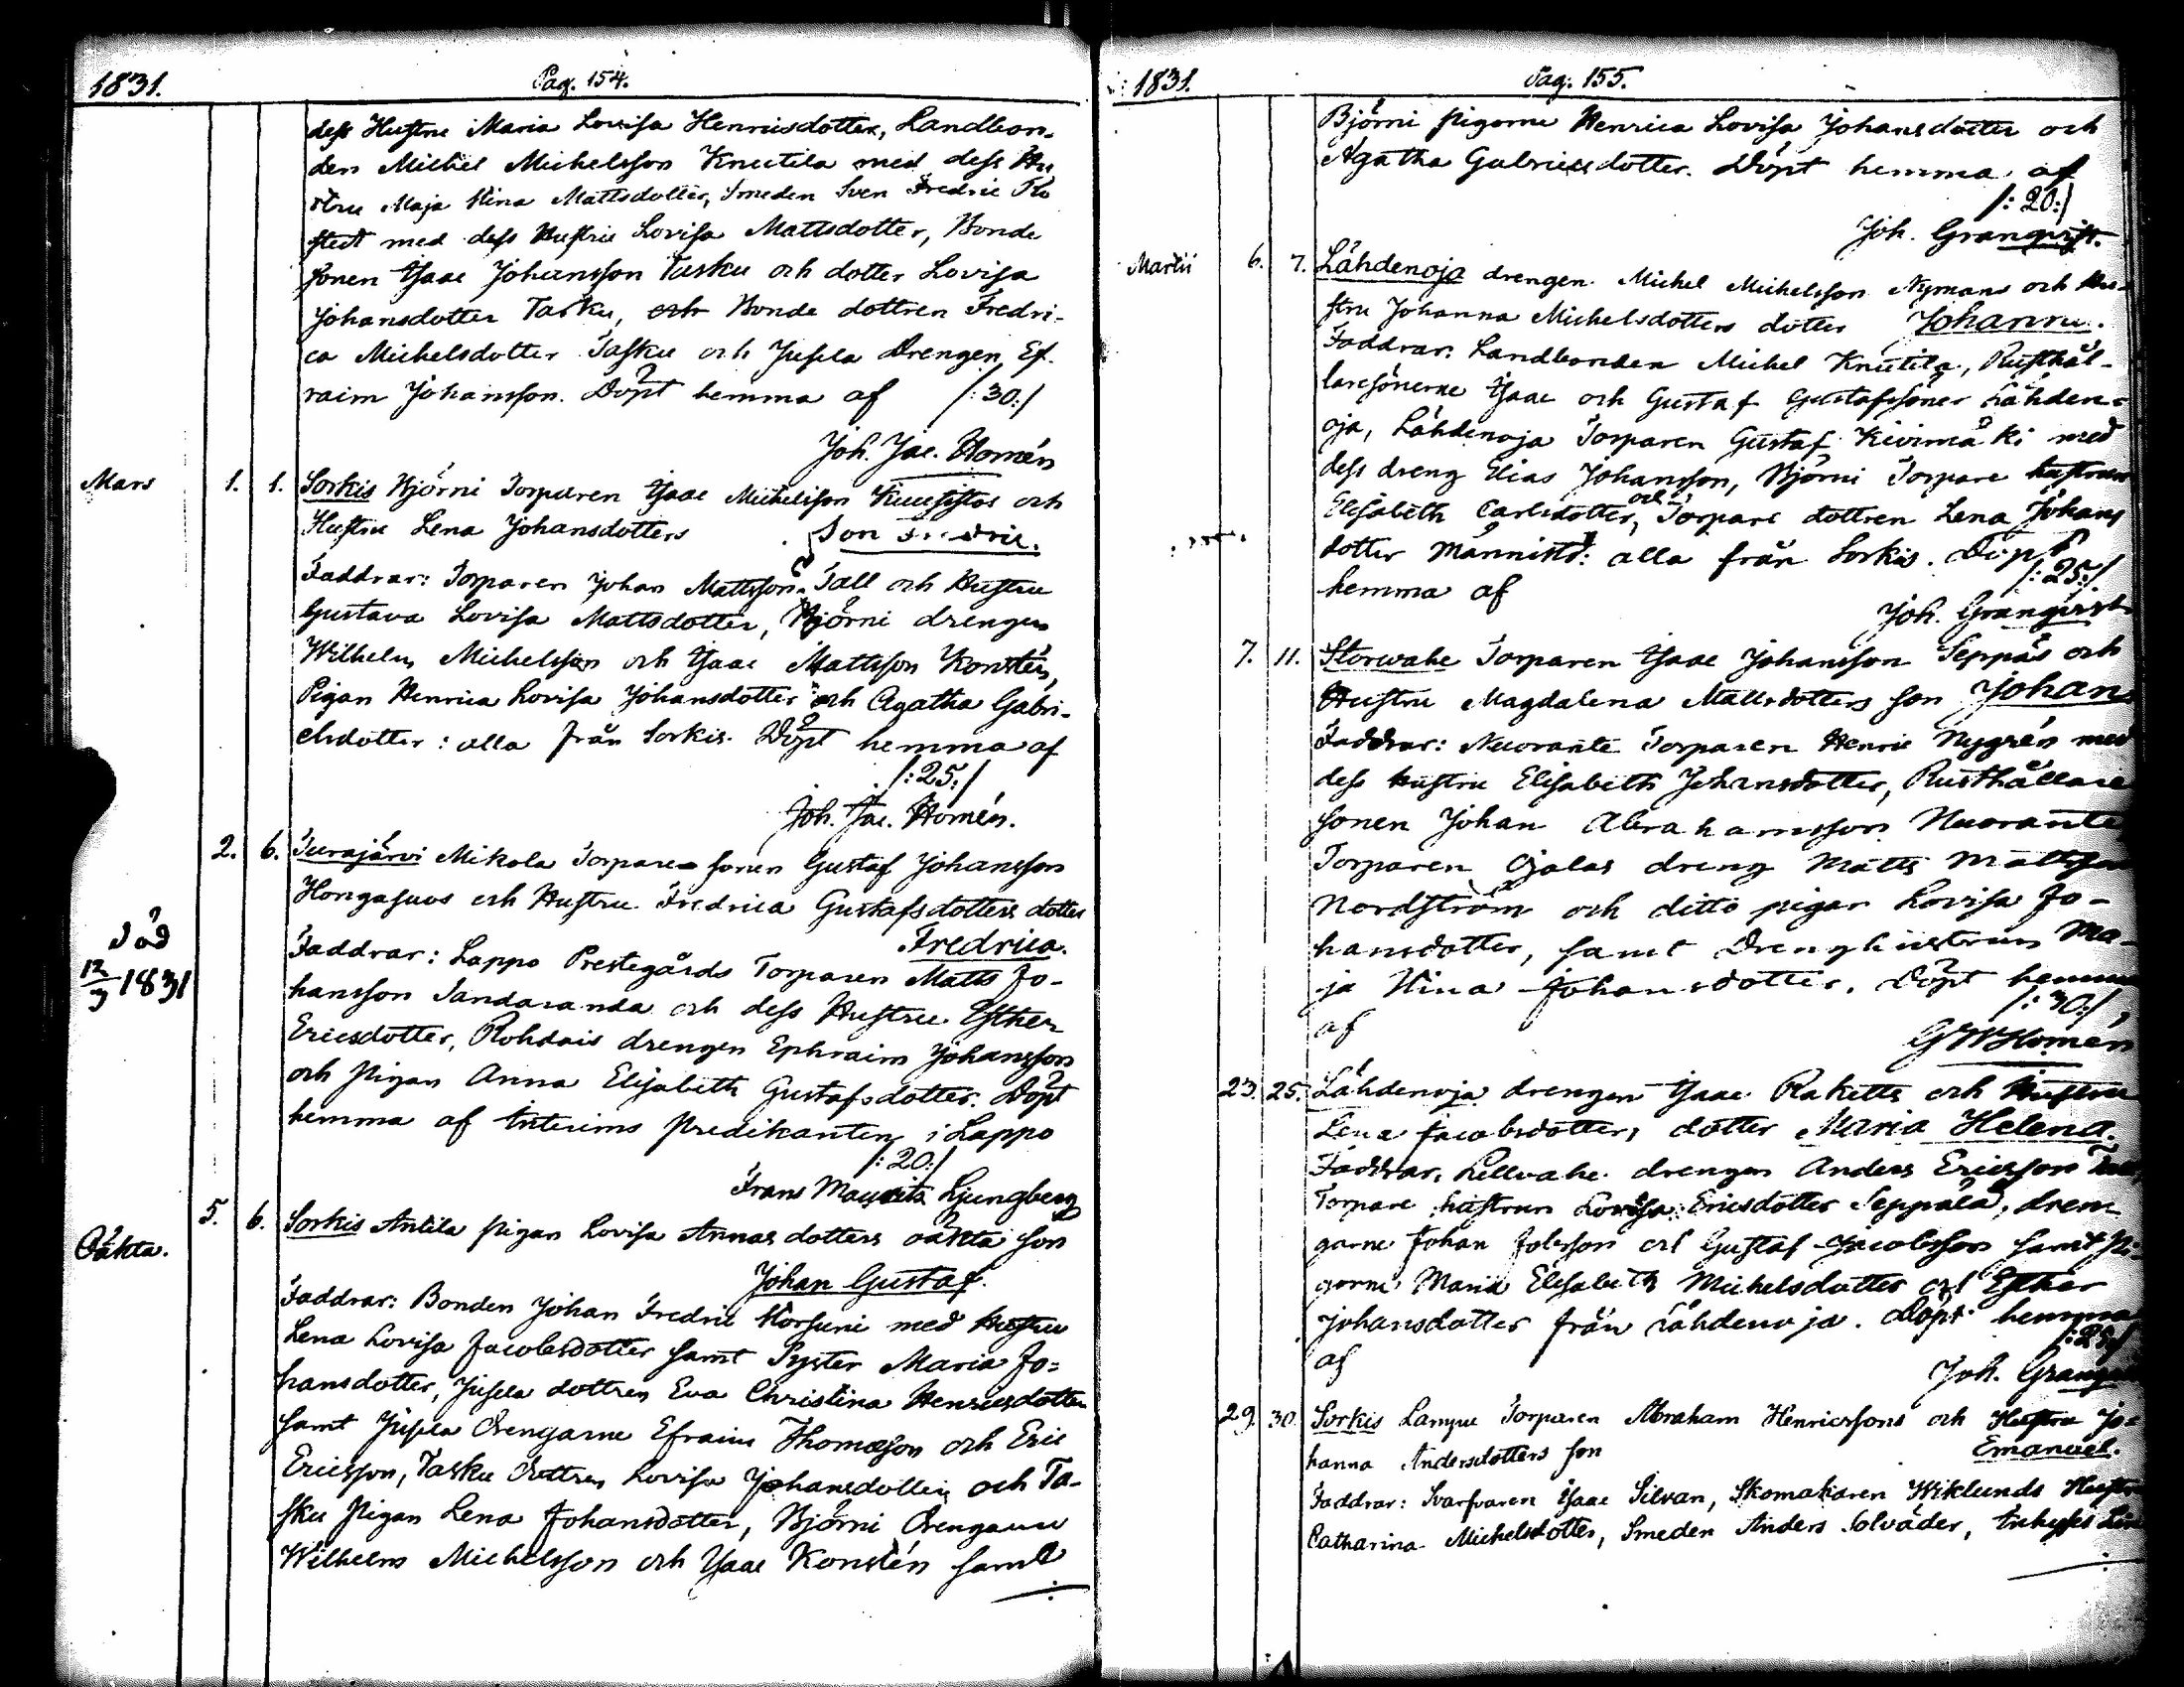 1831.
Pag. 154.
dess Hustru Maria Lovisa Henricsdotter, Landbon-
den Michel Michelsson Knuutila med dess Hu
stru Maja Stina Mattsdotter, Smeden Sven Fredric
stedt med dess Hustru Lovisa Mattsdotter, Bonde
sonen Isaac Johansson Tasku och dotter Lovisa
Johansdotter Tasku, och Bonde dottren Fredri-
ca Michelsdotter Tasku och Jusela Drengen Ef-
raim Johansson. Döpt hemma af /:30:/
Joh. Jac. Homén
Mars 1. 1. Sorkis Björni Torparen Isaac Michelsson och
Hustru Lena Johansdotters Son Fredric.
Faddrar: Torparen Johan Mattsson Tall och Hustru
Gustava Lovisa Mattsdotter, Björni drengen
Wilhelm Michelsson och Isaac Mattsson Konstén,
Pigan Henrica Lovisa Johansdotter och Agatha Gabri-
elsdotter: alla från Sorkis. Döpt hemma af
/:25:/
Joh. Jac. Homén.
2. 6. Turajärvi Mikola Torpare sonen Gustaf Johansson
Hongasuos och Hustru Fredrica Gustafsdotters dotter
Fredrica.
Död
12/3 1831
Faddrar: Lappo Prestegårds Torparen Matts Jo-
hansson Sandaranda och dess Hustru Esther
Ericsdotter, Rohdais drengen Ephraim Johansson
och pigan Anna Elisabeth Gustafsdotter. Döpt
hemma af Interims predikanten i Lappo
/:20:/
Frans Mauritz Ljungberg
Oäkta. 5. 6. Sorkis Antila pigan Lovisa Annas dotters oäkta son
Johan Gustaf.
Faddrar: Bonden Johan Fredric Korsuni med Hustru
Lena Lovisa Jacobsdotter samt Syster Maria Jo=
hansdotter, Jusela dottren Eva Christina Henricsdotter
samt Jusela Drengarne Efraim Thomasson och Eric
Ericsson, Tasku dottren Lovisa Johansdotter och Ta-
sku pigan Lena Johansdotter, Björni Drengarne
Wilhelm Michelsson och Isaac Konstén samt
1831.
Pag. 155.
Björni pigorne Henrica Lovisa Johansdotter och
Agatha Gabrielsdotter. Döpt hemma af
/:20:/
Joh. Granqvist.
Martii 6. 7. Lähdenoja drengen Michel Michelsson Nymans och Hu-
stru Johanna Michelsdotters dotter Johanna.
Faddrar: Landbonden Michel Knutila, Rusthål-
laresönerne Isaac och Gustaf Gustafssöner Lähden-
oja, Lähdenoja Torparen Gustaf Kivimäki med
dess dreng Elias Johansson, Björni Torpare hustrun
Elisabeth Carlsdotter, och Torpare dottren Lena Johans
dotter Männistö: alla från Sorkis. Döpt
/:25:/
hemma af
Joh. Granqvist
7. 11. Storwahe Torparen Isaac Johansson Seppäs och
Hustru Magdalena Mattsdotters son Johan
Faddrar: Nuorante Torparen Henric Nygrén med
dess hustru Elisabeth Johansdotter, Rusthållare
sonen Johan Abrahamsson Nuorante
Torparen Ojalas dreng Matts Mattsson
Nordström och ditto pigan Lovisa Jo-
hansdotter, samt Dreng hustrun Ma-
ja Stina Johansdotter. Döpt hemma
/:30:/
af
G W Homén
23. 25. Lähdenoja drengen Isaac Raketts och Hustru
Lena Jacobsdotters dotter Maria Helena.
Faddrar: Lillvahe drengen Anders Ericsson
Torpare hustrun Lovisa Ericsdotter Seppälä, dren-
garne Johan Jobsson och Gustaf Jacobsson samt Pi
gorne Maria Elisabeth Michelsdotter och Esther
Johansdotter från Lähdenoja. Döpt hemma
/:25:/
af
Joh. Granqvist
29. 30. Sorkis Lampu Torparen Abraham Henricssons och Hustru Jo=
hanna Andersdotters son Emanuel.
Faddrar: Svarfvaren Isaac Silvan, Skomakaren Wiklunds Hustru
Catharina Michelsdotter, Smeden Anders Solväder, Inhyses